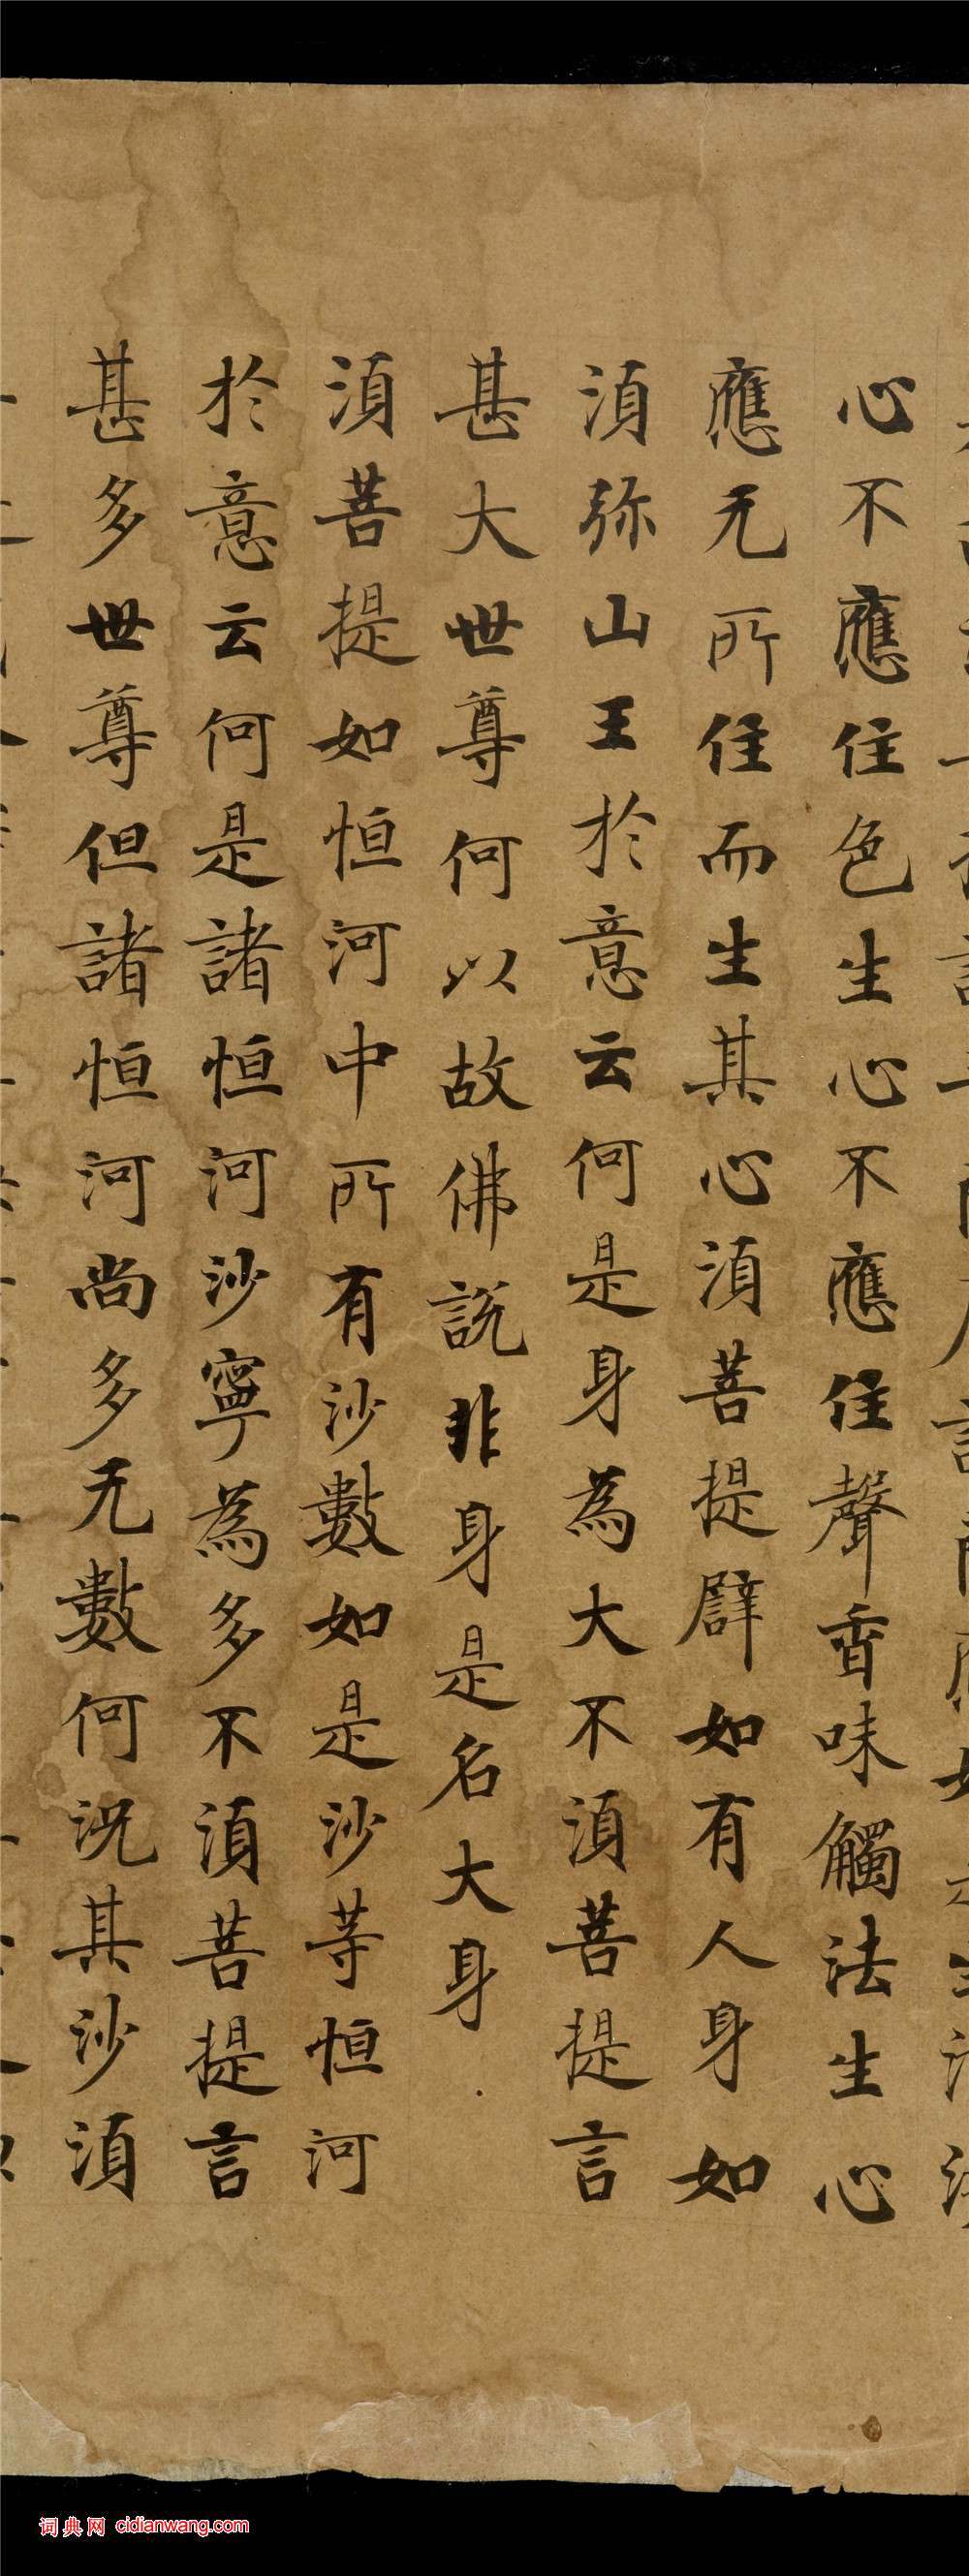 心不應住色生心不應住聲香味觸法生心
應无所住而生其心須菩提譬如有人身如
須弥山王於意云何是身為大不須菩提言
甚大世尊何以故佛說非身是名大身
須菩提如恒河中所有沙數如是沙等恒河
於意云何是諸恒河沙寧為多不須菩提言
甚多世尊但諸恒河尚多无數何況其沙須
词典网 cidianwang.com